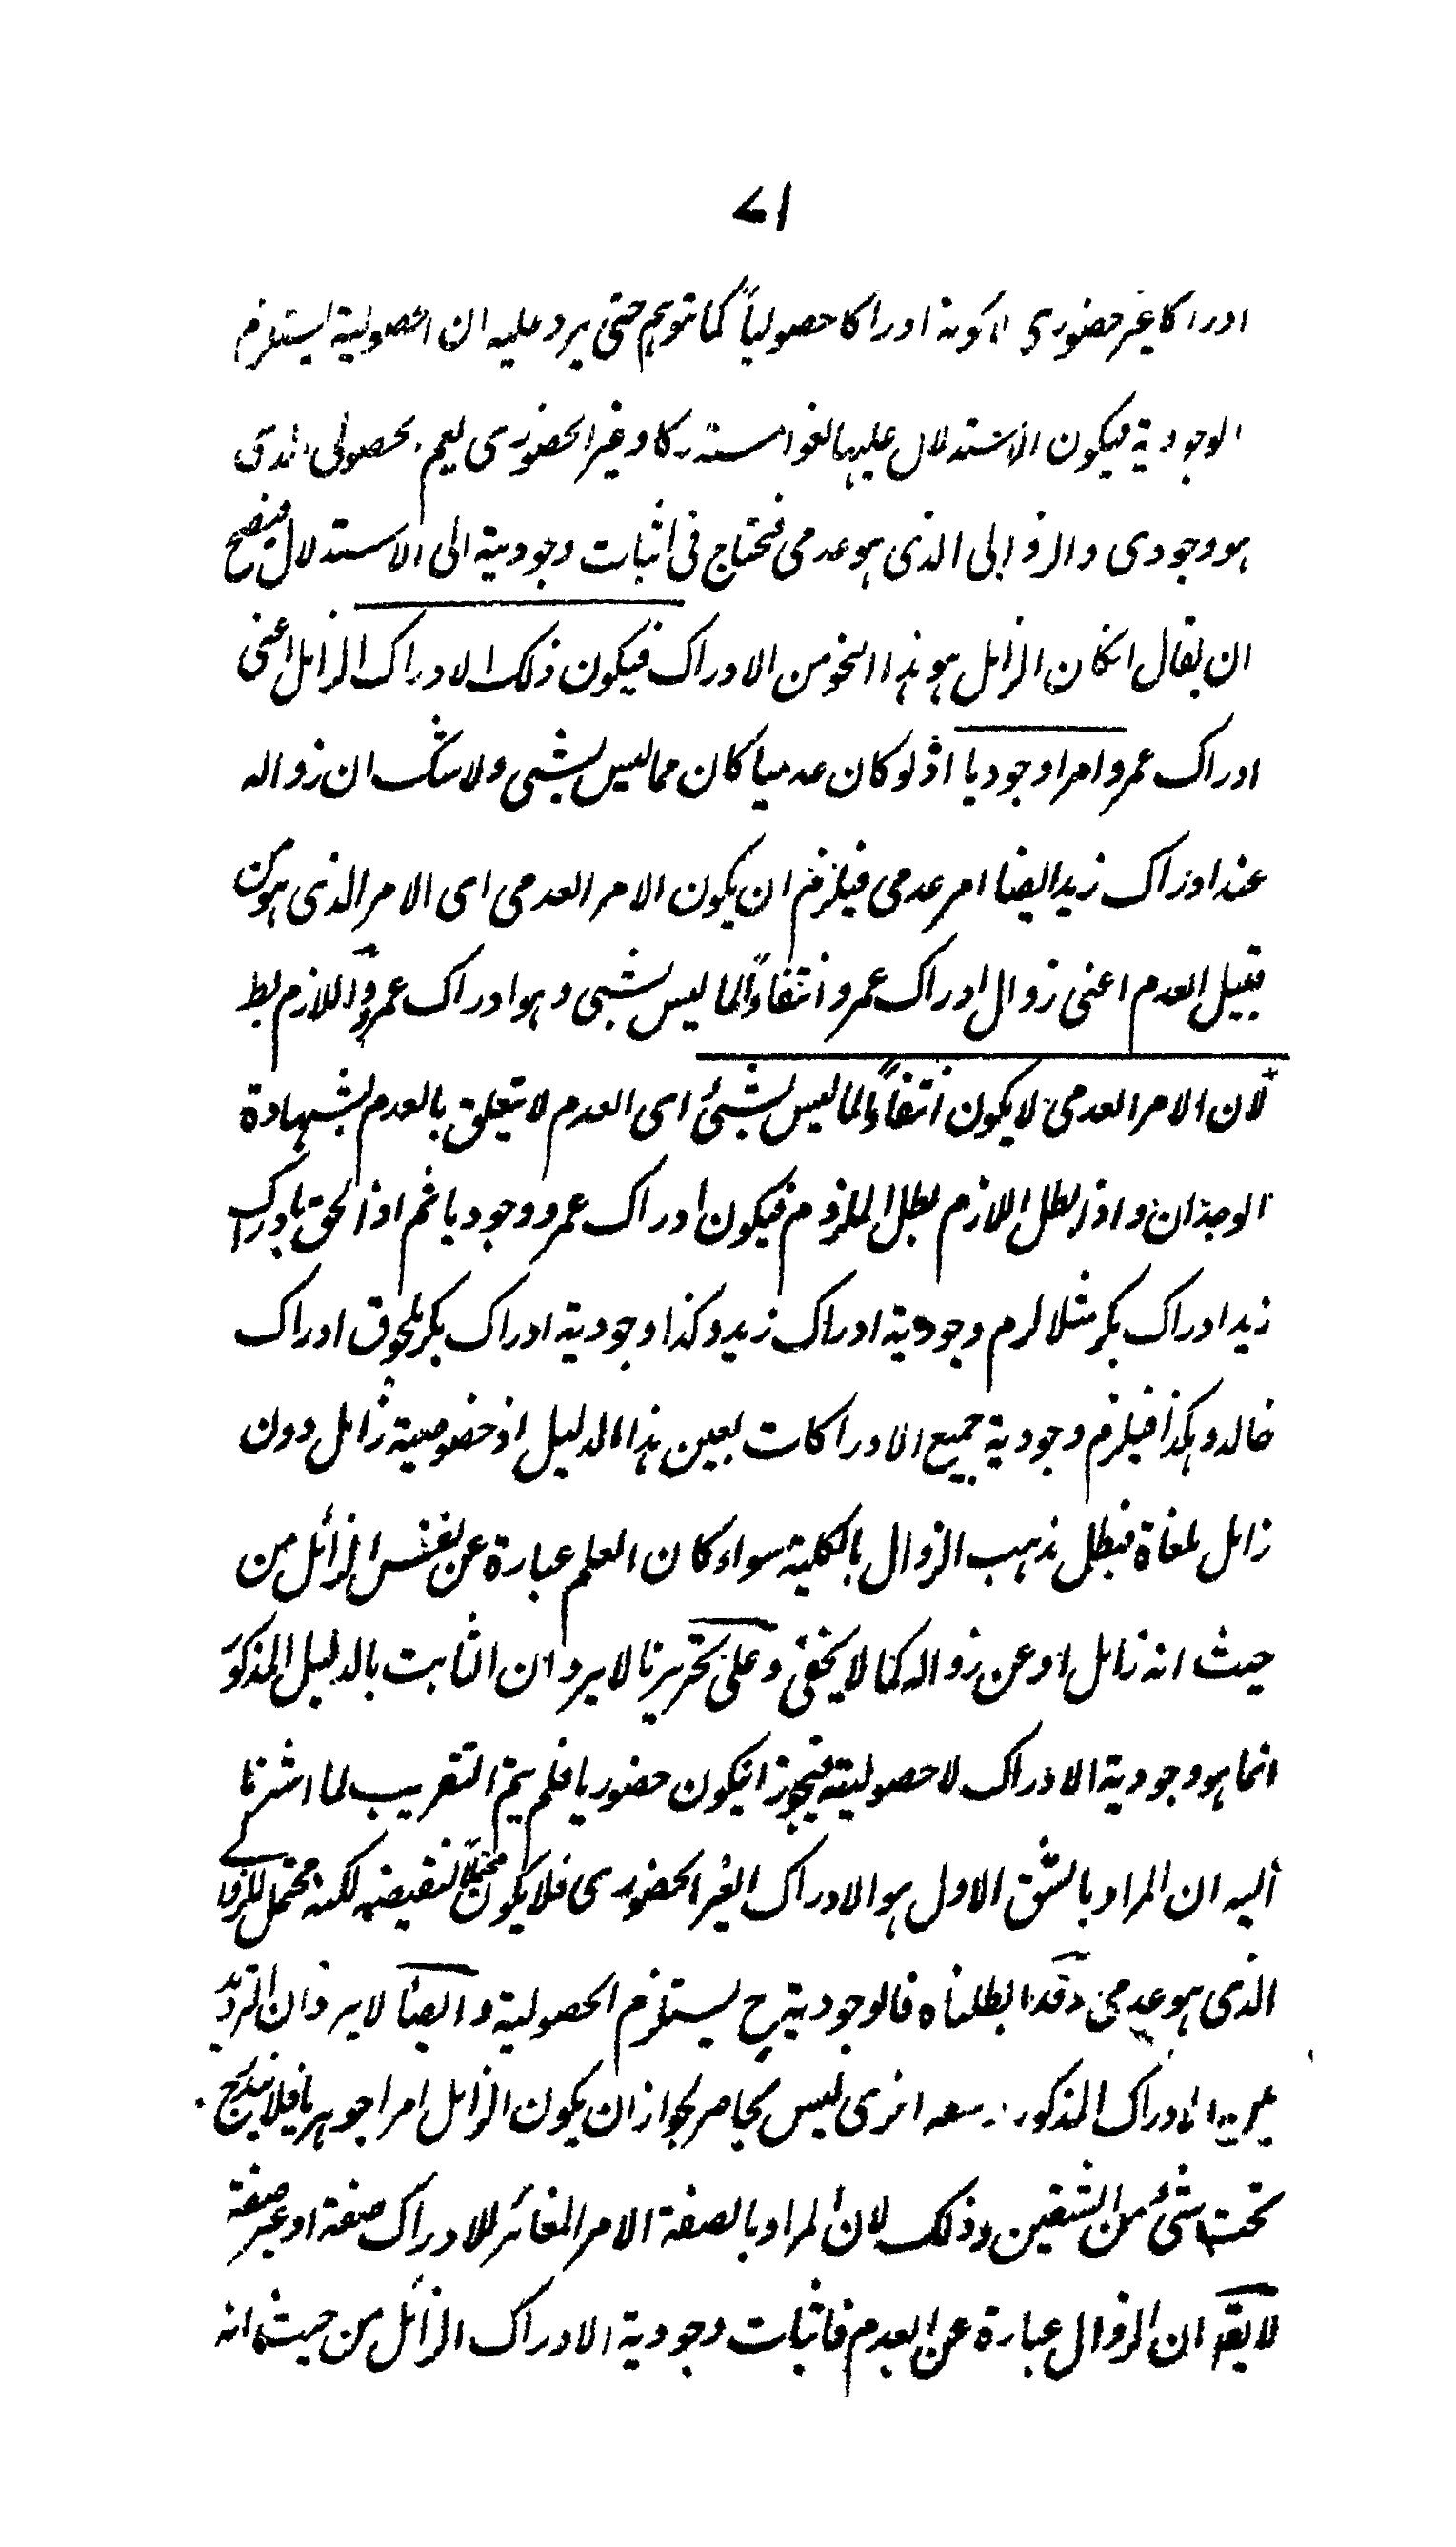 ۷۱
ادراكا غير حضوري لا كونه ادراكا حصولياً كما توهم حتى يرد عليه ان الحصولية يستلزم
الوجودية فيكون الاستدلال عليها لغوا مستدركا وغير الحضوري ليعم الحصولي الذي
هو وجودي والزوالي الذي هو عدمي فنحتاج في اثبات وجودية الى الاستدلال فيصح
ان يقال انكان الزائل هو هذا النحو من الادراك فيكون ذلك الادراك الزائل اعني
ادراك عمرو امرا وجوديا اذ لو كان عدميا كان مما ليس بشيى ولا شك ان زواله
عند ادراك زيد ايضا امر عدمي فيلزم ان يكون الامر العدمي اى الامر الذي هو من
قبيل العدم اعني زوال ادراك عمرو انتفاءً لما ليس بشيى وهو ادراك عمرو واللازم بط
لان الامر العدمي لا يكون انتفاءً لما ليس بشيئ اى العدم لا يتعلق بالعدم بشهادة
الوجدان واذا بطل اللازم بطل الملزوم فيكون ادراك عمرو وجوديا ثم اذا لحق بادراك
زيد ادراك بكر مثلا لزم وجودية ادراك زيد وكذا وجودية ادراك بكر بلحوق ادراك
خالد وهكذا فيلزم وجودية جميع الادراكات بعين هذا الدليل اذ خصوصية زائل دون
زائل ملغاة فبطل مذهب الزوال بالكلية سواء كان العلم عبارة عن نفس الزائل من
حيث انه زائل او عن زواله كما لا يخفى وعلى تحريرنا لا يرد ان الثابت بالدليل المذكور
انما هو وجودية الادراك لا حصولية فيجوز انيكون حضوريا فلم يتم التقريب لما اشرنا
اليه ان المراد بالشق الاول هو الادراك الغير الحضوري فلا يكون محتملا لنقيضه لكنه محتمل للزوالي
الذي هو عدمي وقد ابطلناه فالوجودية ح يستلزم الحصولية وايضا لا يرد ان الترديد
بين الادراك المذكور وصفة اخرى ليس بحاصر لجواز ان يكون الزائل امرا جوهريا فلا يندرج
تحت شئ من الشقين وذلك لان المراد بالصفة الامر المغائر للادراك صفة او غير صفة
لا يقه ان الزوال عبارة عن العدم فاثبات وجودية الادراك الزائل من حيث انه